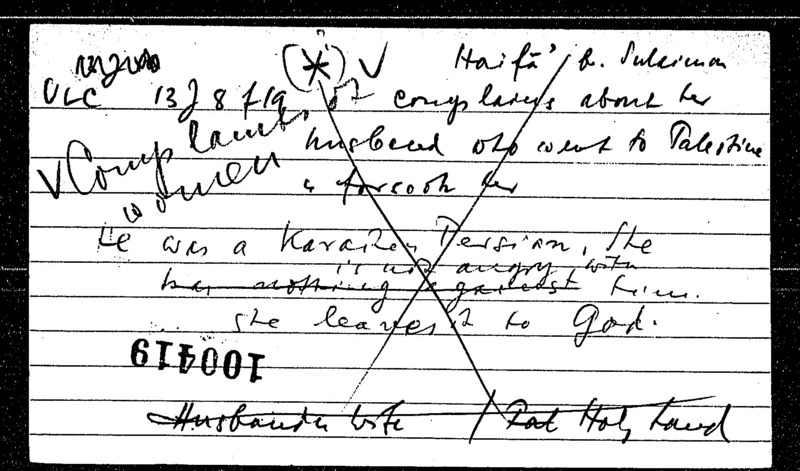 (*) V Haifā' b. Sulaiman
ULC 13 J 8 f 19 complains about her
V Complaints of women
husband who went to Palestine
& forsook her
He was a Karaite, Persian, She
is not angry with
has nothing against him.
she leaves it to God.
100419
Husband & Wife / Pal Holy Land